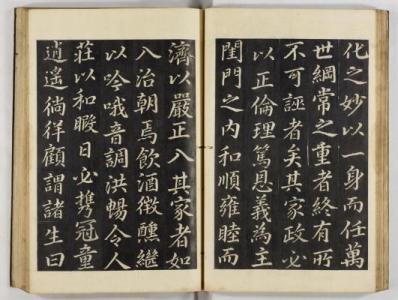 化之妙以一身而任萬
世綱常之重者終有所
不可誣者矣其家政必
以正倫理篤恩義為主
閨門之內和順雍睦而
濟以嚴正入其家者如
入治朝焉飲酒微醺繼
以吟哦音調洪暢令人
莊以和暇日必携冠童
逍遙徜徉顧謂諸生曰